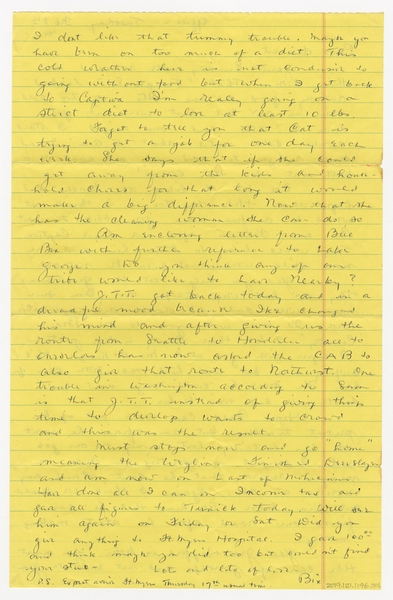 I dont like that tummy trouble. Maybe you
have been on too much of a diet. This
cold weather here is not conducive to
going without food but when I get back
to Captiva I'm really going on a
strict diet to lose at least 10 lbs.
Forgot to tell you that Cat is
trying to get a job for one day each
week. She says that if she could
get away from the kids and house-
hold chores for that long it would
make a big difference. Now that she
has the cleaning woman she can do so
Am enclosing letter from Blue
Bix with further reference to Lake
George. Do you think any of our
tribe would like to have nearby?
J.T.T. got back today and in a
dreadful mood because Ike changed
his mind and after giving us the
route from Seattle to Honolulu all to
ourselves has now asked the CAB to
also give that route to Northwest. One
trouble in Washington according to
is that J.T.T. instead of giving things
time to develop wants to crowd
and this was the result.
Must stop now and go "home"
meaning the Finished
and am now on Last of Mohicans.
Have done all I can on Income tax and
gave all figures to today. Will see
him again on Friday or Sat. Did you
give anything to Ft. Myers Hospital. I gave 100⁰⁰
and think maybe you did too but could not find
your stub - Lots and lots of love
Bix
P.S. Expect arrive Ft. Myers Thursday 19th usual time